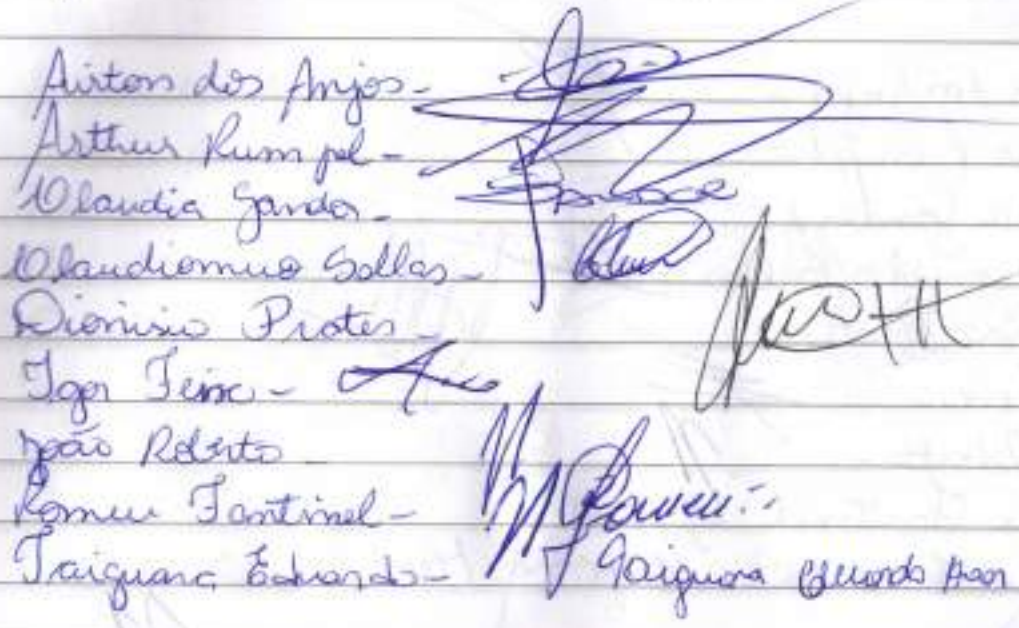 Airton dos Anjos-
Arthur Rumpel-
Claudia Sandor-
Claudiomiro Sallas-
Dionisio Prates-
Igor Teixe-
João Roberto-
Romeu Fantinel- Romeu
Taiguara Eduardo- Taiguara Eduardo